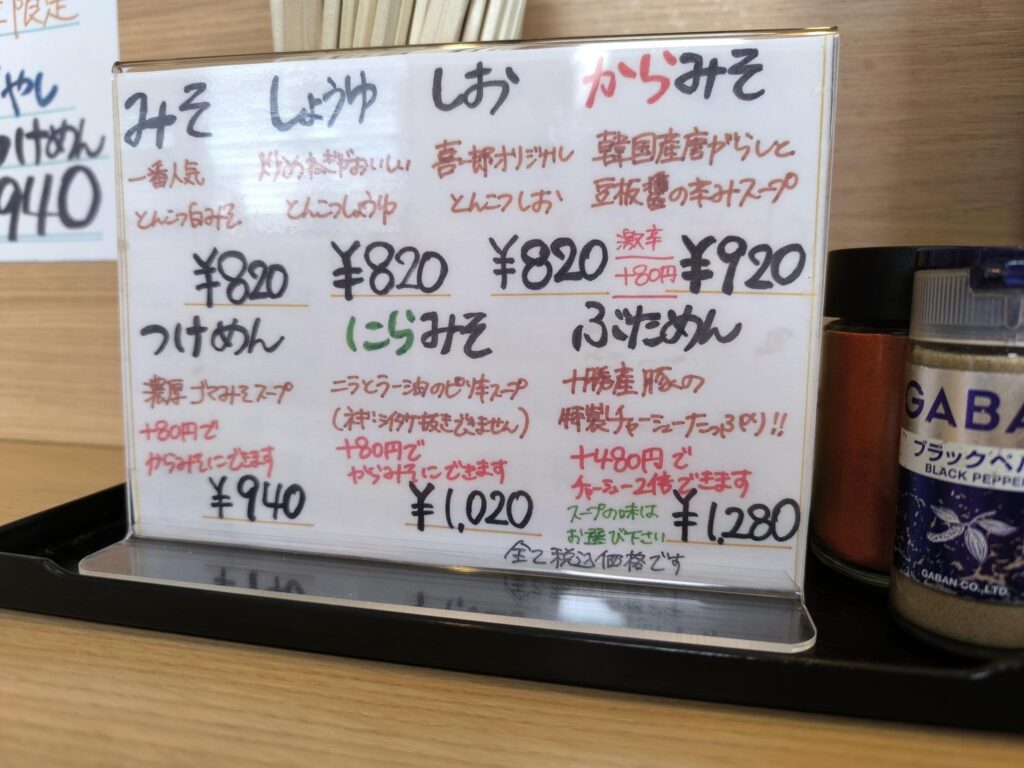 限定
やし
つけめん
940
みそ
しょうゆ
しお
からみそ
一番人気
とんこつ白みそ
¥820
炒めねぎがおいしい
とんこつしょうゆ
¥820
喜一郎オリジナル
とんこつしお
¥820
韓国産唐がらしと
豆板醤の辛みスープ
激辛
+80円
¥920
つけめん
濃厚ゴマみそスープ
+80円で
からみそにできます
¥940
にらみそ
ニラとラー油のピリ辛スープ
シイタケ抜きできません)
+80円で
からみそにできます
¥1,020
ぶためん
十勝産豚の
特製チャーシューたっぷり!!
+480円で
チャーシュー2倍できます
スープの味は
お選び下さい
¥1,280
全て税込価格です
GABA
ブラックペ
BLACK PEPPE
GABAN CO.,LTD.